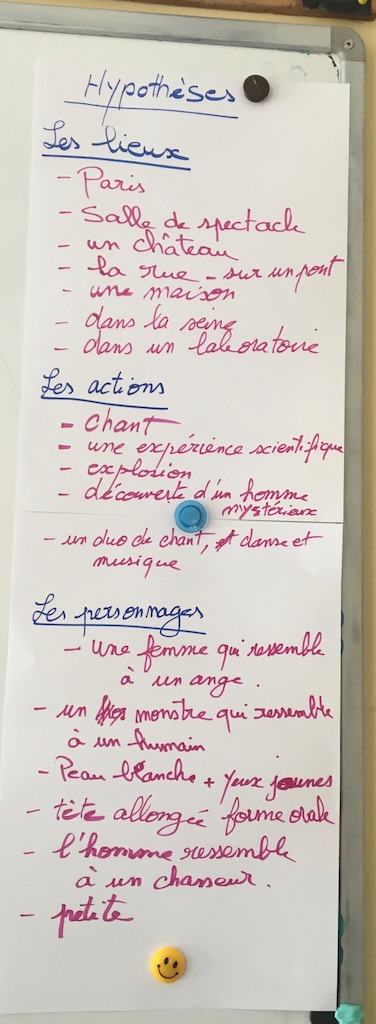 Hypothèses
Les lieux
- Paris
- Salle de spectacle
- un château
- la rue - sur un pont
- une maison
- dans la seine
- dans un laboratoire
Les actions
- chant
- une expérience scientifique
- explosion
- découverte d'un homme
mystérieux
- un duo de chant, danse et
musique
Les personnages
- Une femme qui ressemble
à un ange.
- un monstre qui ressemble
à un humain
- Peau blanche + yeux jaunes
- tête allongée forme orale
- l'homme ressemble
à un chasseur.
- petite